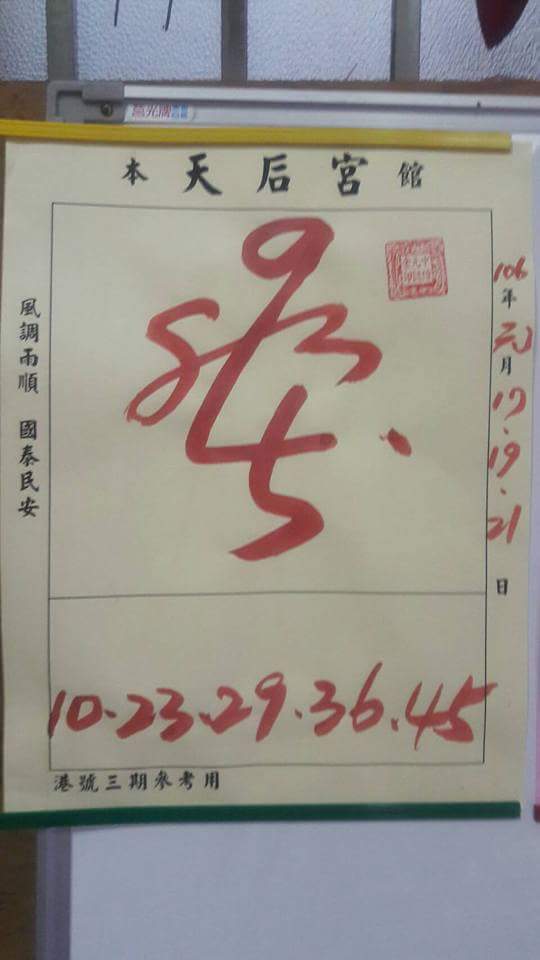 高光牌
本 天后宮 館
106年元月17.19.21日
風調雨順 國泰民安
10.23.29.36.45
港號三期參考用